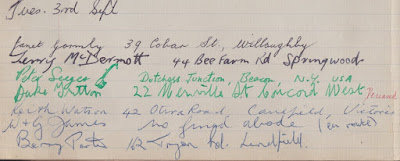 Tues. 3rd Sept
Janet Gormly 39 Cobar St, Willoughby
Terry McDermott 44 Bee Farm Rd Springwood
Pete Seeger Dutchess Junction, Beacon, N.Y. USA
Duke Tritton 22 Merville St Concord West
Keith Watson 42 Otira Road, Caulfield, Victoria
+ G James no fixed abode (en route)
Berry Park Rd. Lindfield.